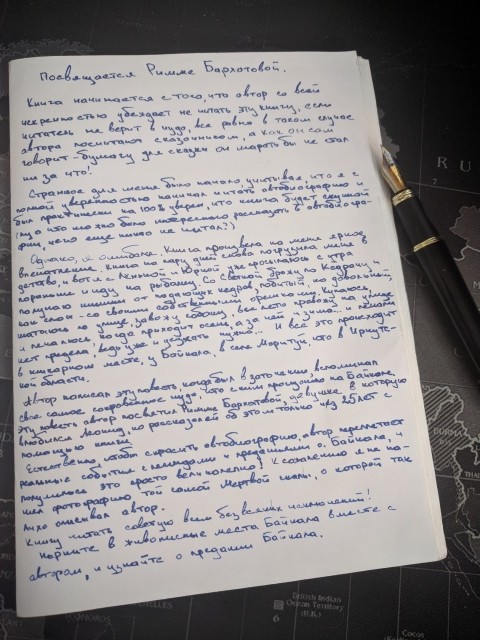 Посвящается Римме Бархотовой.
Книга начинается с того, что автор со всей
искренностью убеждает не читать эту книгу, если
читатель не верит в чудо, все равно в таком случае
автора посчитают сказочником, а как он сам
говорит - бумагу для сказки он марать бы не стал
ни за что!
Странное для меня было начало учитывая, что я с
полной уверенностью начинал читать автобиографию и
был практически на 100% уверен, что книга будет скучной
(ну а что можно было интересного рассказать в автобиогра-
фии, чего еще никто не читал?)
Однако, я ошибался. Книга произвела на меня яркое
впечатление. Книга на пару дней снова погрузила меня в
детство, и вот я с Ленькой и Юркой уже просыпаюсь с утра
пораньше и иду на рыбалку. Со Светкой брожу по кедрачу и
получаю шишками от кедров, побитый, но довольный
как слон - со своими собственными орешками. Купаюсь,
шатаюсь по улице, завожу собаку, все лето провожу на улице
и печалюсь, когда приходит осень, а за ней и зима... и печали
нет предела, ведь уже и уезжать нужно... И все это происходит
в шикарном месте, у Байкала, в селе Моритуй, что в Иркутс-
кой области.
Автор написал эту повесть, когда был в заточении, вспоминал
свое самое сокровенное чудо, что с ним произошло на Байкале,
эту повесть автор посвятил Римме Бархотовой, девушке, в которую
влюбился Леонид, но рассказал об этом только чуд 25 лет с
помощью книги.
Естественно, чтобы скрасить автобиографию, автор переплетает
реальные события с легендами и преданиями о Байкале, и
получилось это просто великолепно! К сожалению я не на-
шел фотографию, той самой Мертвой скалы, о которой так
лихо описывал автор.
Книгу читать советую всем без всяких исключений!
Нырните в живописные места Байкала вместе с
автором, и узнайте о предании Байкала.
RU
British Indian
Ocean Territory
6
Cocos